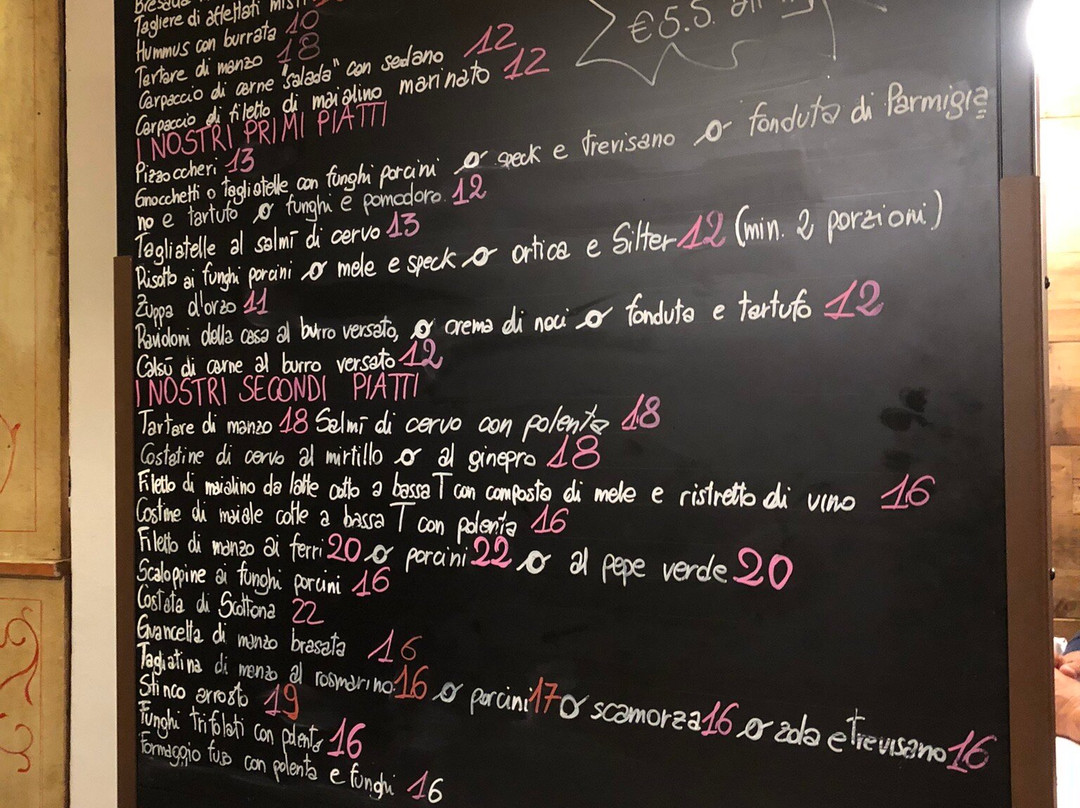 Tagliere di affettati misti
Hummus con burrata 10
Tartare di manzo 18
Carpaccio di carne "salada" con sedano 12
Carpaccio di filetto di maialino marinato 12
€ 5.5.
I NOSTRI PRIMI PIATTI
Pizzoccheri 13
Gnocchetti o tagliatelle con funghi porcini o speck e trevisano o fonduta di Parmigia
no e tartufo o funghi e pomodoro. 12
Tagliatelle al salmì di cervo 13
Risotto ai funghi porcini o mele e speck o ortica e Silter 12 (min. 2 porzioni)
Zuppa d'orzo 11
Ravioloni della casa al burro versato, o crema di noci o fonduta e tartufo 12
Calsù di carne al burro versato 12
I NOSTRI SECONDI PIATTI
Tartare di manzo 18 Salmì di cervo con polenta 18
Costatine di cervo al mirtillo o al ginepro 18
Filetto di maialino da latte cotto a bassa T con composta di mele e ristretto di vino 16
Costine di maiale cotte a bassa T con polenta 16
Filetto di manzo ai ferri 20 o porcini 22 o al pepe verde 20
Scaloppine ai funghi porcini 16
Costata di Scottona 22
Guancetta di manzo brasata 16
Tagliatina di manzo al rosmarino 16 o porcini 17 o scamorza 16 o zola e Trevisano 16
Stinco arrosto 19
Funghi trifolati con polenta 16
Formaggio fuso con polenta e funghi 16